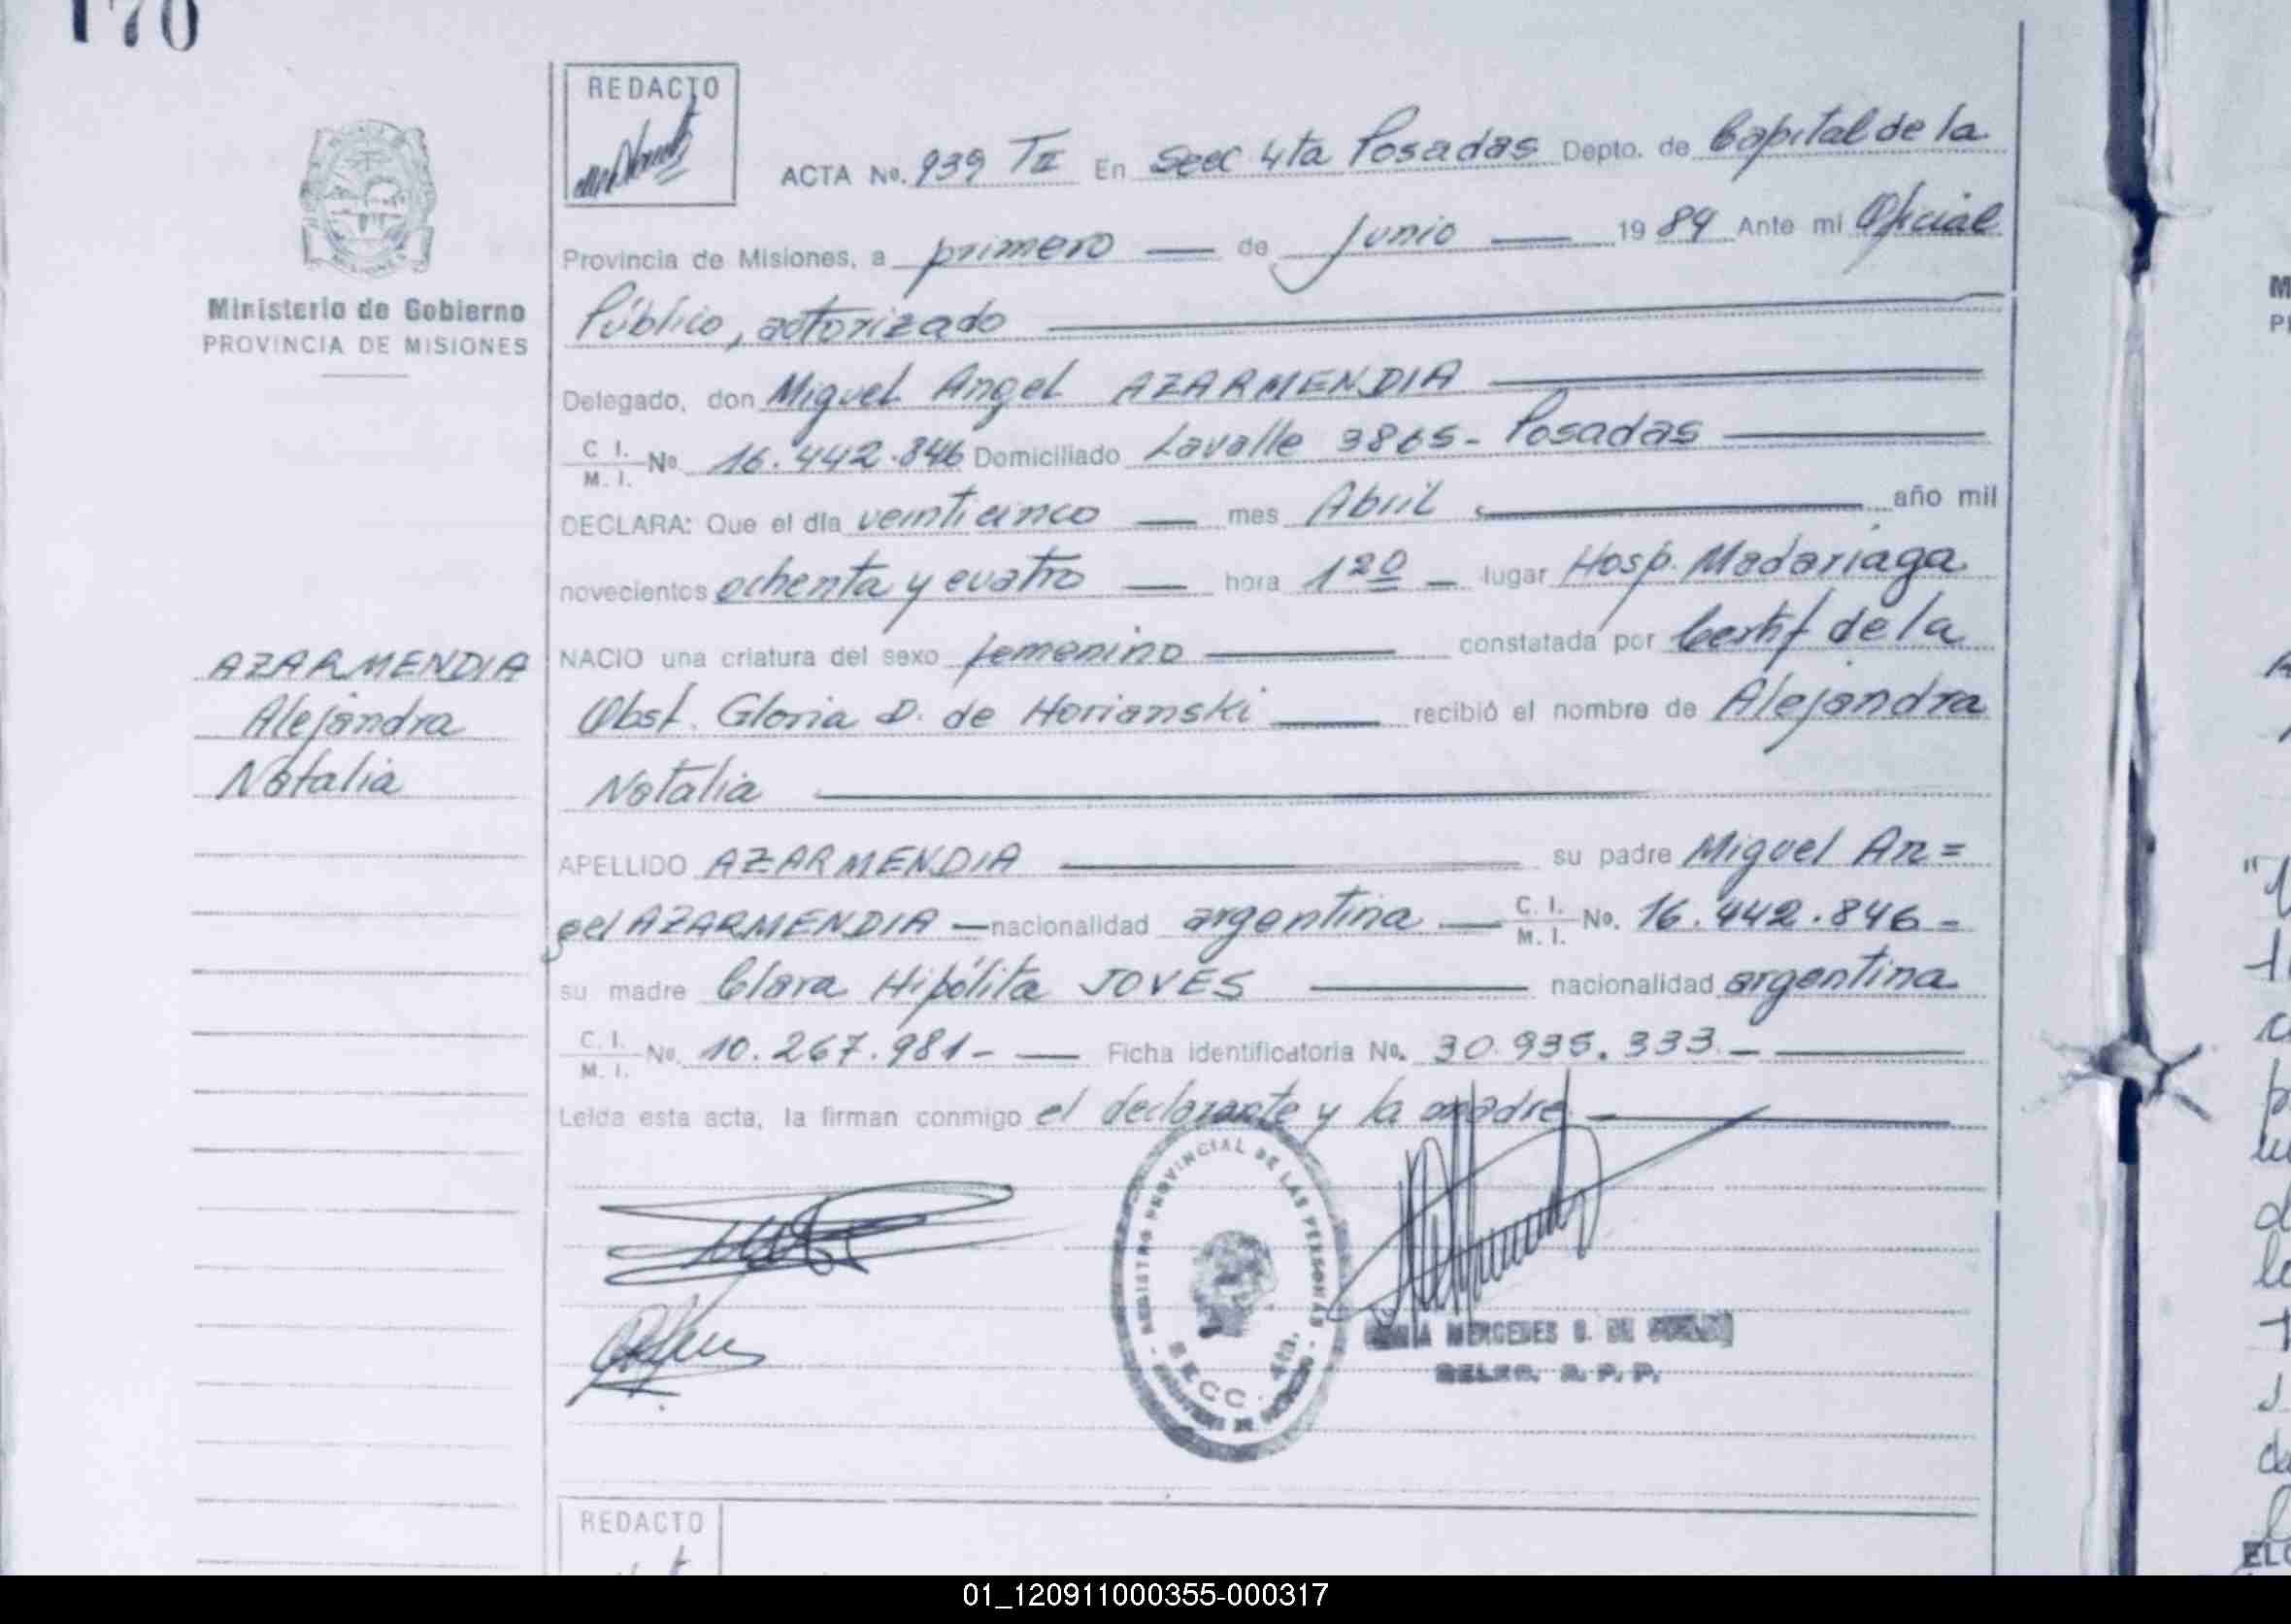 170
REDACTO
ACTA No. 939 TII En Secc 4ta Posadas Depto. de Capital de la
Provincia de Misiones, a primero de Junio 1984 Ante mi Oficial
Público, autorizado
Ministerio de Gobierno
PROVINCIA DE MISIONES
Delegado, don Miguel Angel AZARMENDIA
C. I. M. I. No. 16.442.846 Domiciliado Lavalle 3865 - Posadas
DECLARA: Que el día veinticinco mes Abril año mil
novecientos ochenta y cuatro hora 1 20 lugar Hosp. Madariaga
NACIO una criatura del sexo femenino constatada por Certif de la
Obst. Gloria D. de Horianski recibió el nombre de Alejandra
Natalia
AZARMENDIA
Alejandra
Natalia
APELLIDO AZARMENDIA su padre Miguel An=
gel AZARMENDIA nacionalidad argentina C. I. M. I. No. 16.442.846 -
su madre Clara Hipólita JOVES nacionalidad argentina
C. I. M. I. No. 10.267.981 - Ficha identificatoria No. 30.935.333 -
Leída esta acta, la firman conmigo el declarante y la madre
REGISTRO PROVINCIAL DE LAS PERSONAS
SECC. 4ta.
MERCEDES
R. P. P.
REDACTO
01_120911000355-000317